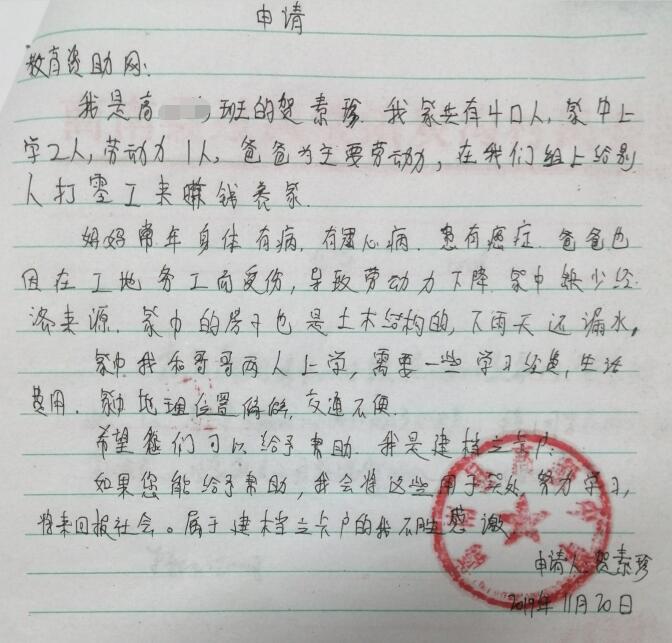 申请
教育资助网:
我是高 班的贺素珍.我家共有4口人,家中上
学2人,劳动力1人,爸爸为主要劳动力,在我们组上给别
人打零工来赚钱养家.
妈妈常年身体有病.有冠心病.患有癌症.爸爸也
因在工地务工而受伤,导致劳动力下降.家中缺少经
济来源.家中的房子也是土木结构的,下雨天还漏水.
家中我和哥哥两人上学,需要一些学习经费,生活
费用.家中地理位置偏僻,交通不便.
希望您们可以给予帮助.我是建档立卡户.
如果您能给予帮助,我会将这些用于实处.努力学习,
将来回报社会。属于建档立卡户的我不胜感激
申请人:贺素珍
2019年11月20日